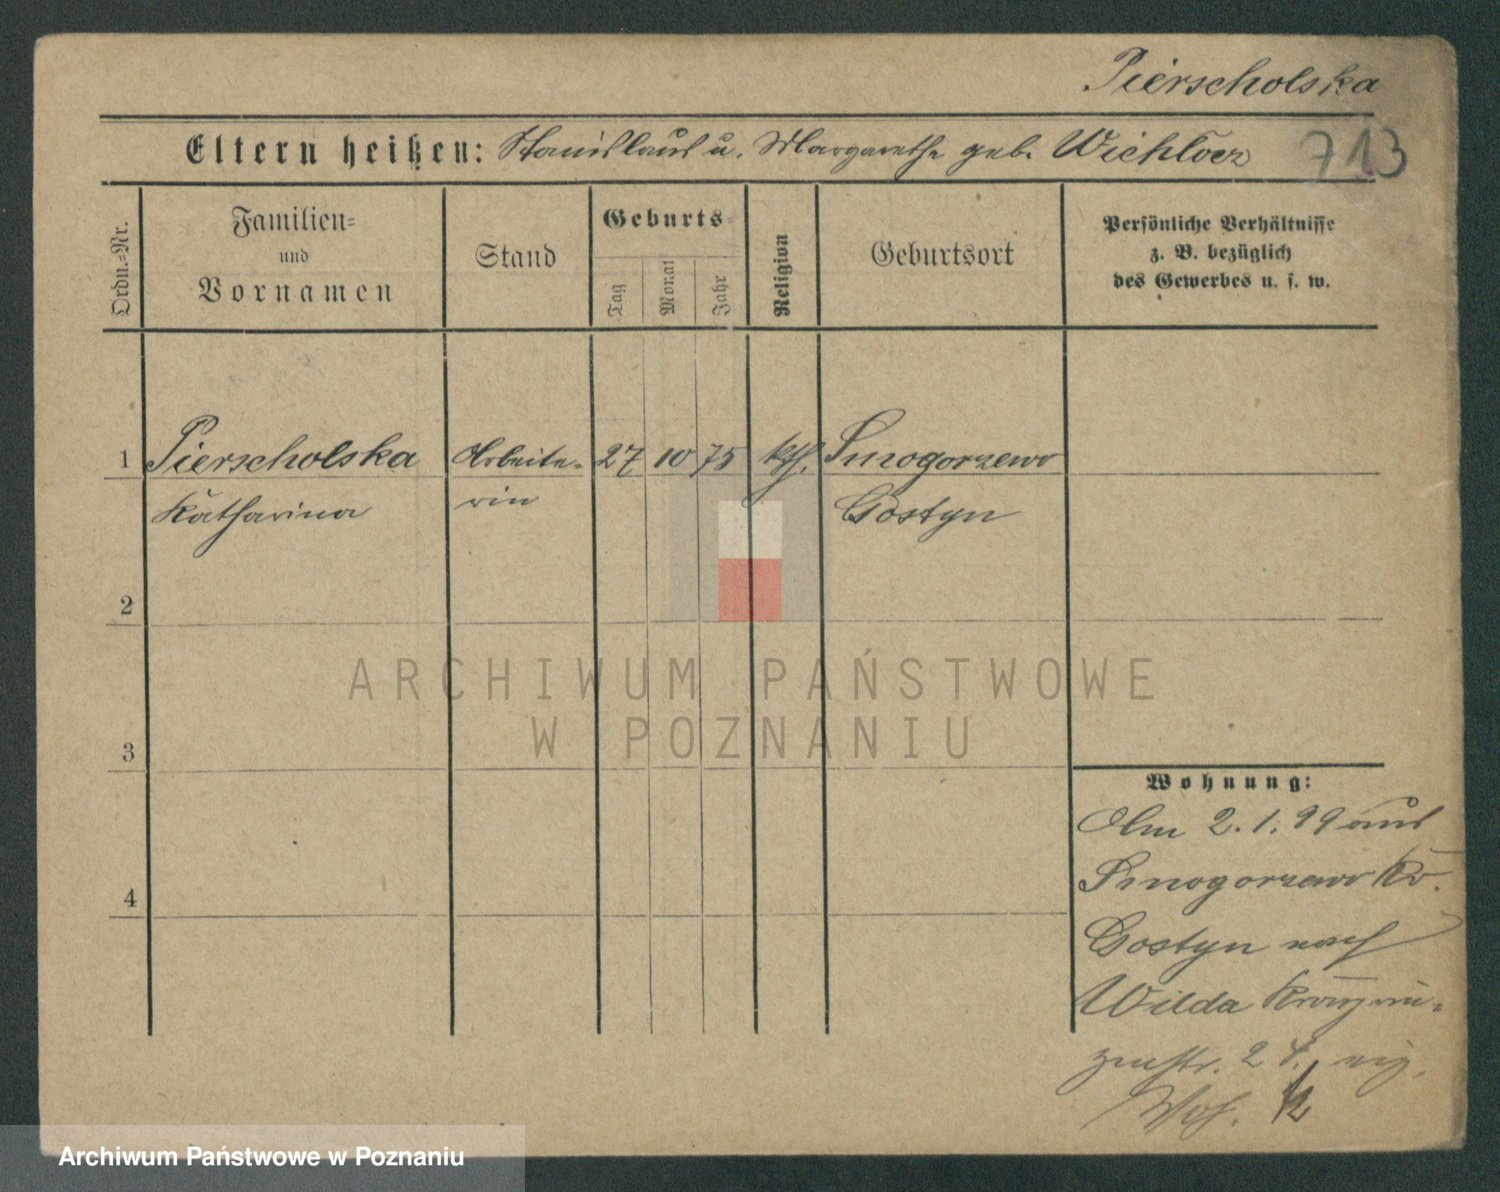 Pierscholska
Eltern heißen: Stanislaus u. Margarethe geb. Wichlacz
713
Ordn.=Nr.
Familien=
und
Vornamen
Stand
Geburts=
Tag
Monat
Jahr
Religion
Geburtsort
Persönliche Verhältnisse
z. B. bezüglich
des Gewerbes u. s. w.
1 Pierscholska Arbeite= 27 10 75 kth. Smogorzewo
Katharina rin Gostyn
2
3
4
Wohnung:
Am 2.1.99 aus
Smogorzewo Kr.
Gostyn nach
Wilda
24.
ARCHIWUM PAŃSTWOWE
W POZNANIU
Archiwum Państwowe w Poznaniu